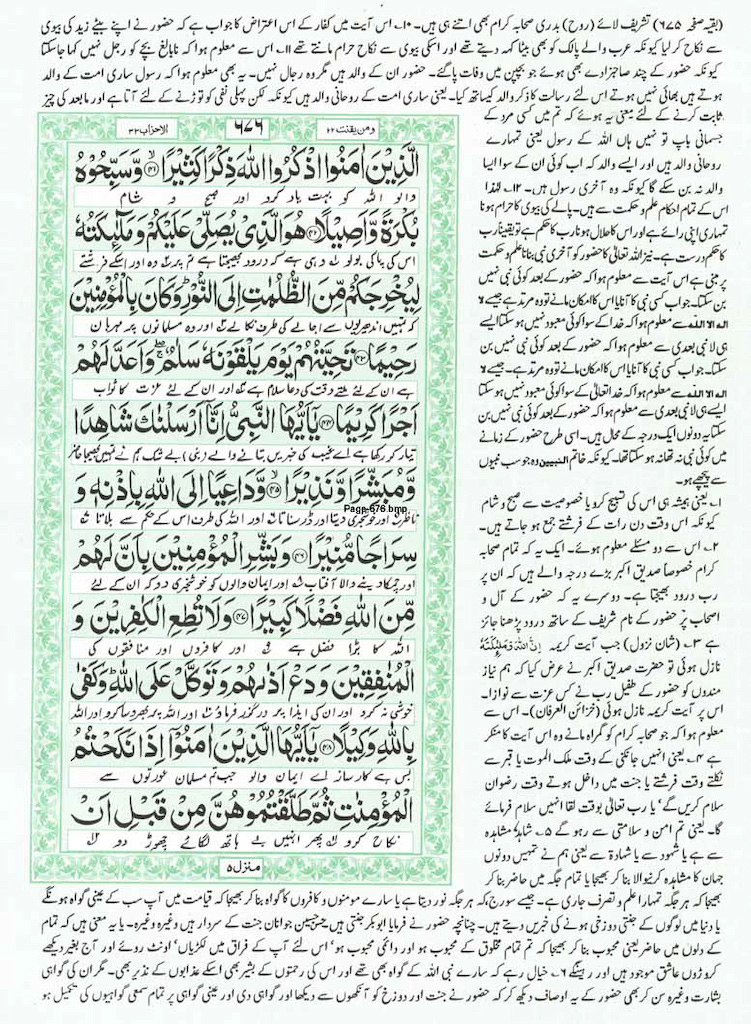 (بقیہ صفحہ ۶۷۵) تشریف لائے (روح) بدری صحابہ کرام بھی اتنے ہی ہیں۔ ۱۰ـ اس آیت میں کفار کے اس اعتراض کا جواب ہے کہ حضور نے اپنے بیٹے زید کی بیوی
سے نکاح کر لیا کیونکہ عرب والے پالک کو بھی بیٹا کہہ دیتے تھے اور اسکی بیوی سے نکاح حرام مانتے تھے ۱۱ـ اس سے معلوم ہوا کہ نابالغ بچے کو رجل نہیں کہا جا سکتا
کیونکہ حضور کے چند صاحبزادے بھی ہوئے جو بچپن میں وفات پا گئے۔ حضور ان کے والد ہیں مگر وہ رجال نہیں۔ یہ بھی معلوم ہوا کہ رسول ساری امت کے والد
ہوتے ہیں بھائی نہیں ہوتے اس لئے رسالت کا ذکر والد کیساتھ کیا۔ یعنی ساری امت کے روحانی والد ہیں کیونکہ لکن پہلی نفی کو توڑنے کے لئے آتا ہے اور مابعد کی چیز
ثابت کرنے کے لئے معنی یہ ہوئے کہ تم میں کسی مرد کے
جسمانی باپ تو نہیں ہاں اللہ کے رسول یعنی تمہارے
روحانی والد ہیں اور ایسے والد کہ اب کوئی ان کے سوا ایسا
والد نہ بن سکے گا کیونکہ وہ آخری رسول ہیں۔ ۱۲ـ لہٰذا
اس کے تمام احکام علم و حکمت سے ہیں۔ پالے کی بیوی کا حرام ہونا
تمہاری اپنی رائے ہے اور اس کا حلال ہونا رب کا حکم ہے تو یقیناً رب
کا حکم درست ہے۔ نیز اللہ تعالیٰ کا حضور کو آخری نبی بنانا علم و حکمت
پر مبنی ہے اس آیت سے معلوم ہوا کہ حضور کے بعد کوئی نبی نہیں
بن سکتا۔ جو اب کسی نبی کا آنا یا اس کا امکان مانے تو وہ مرتد ہے جیسے لا
الہ الا اللہ سے معلوم ہوا کہ خدا کے سوا کوئی معبود نہیں ہو سکتا ایسے
ہی لا نبی بعدی سے معلوم ہوا کہ حضور کے بعد کوئی نبی نہیں بن
سکتا۔ جو اب کسی نبی کا آنا یا اس کا امکان مانے تو وہ مرتد ہے۔ جیسے لا
الہ الا اللہ سے معلوم ہوا کہ خدا تعالیٰ کے سوا کوئی معبود نہیں ہو سکتا
ایسے ہی لا نبی بعدی سے معلوم ہوا کہ حضور کے بعد کوئی نبی نہیں بن
سکتا یہ دونوں ایک درجہ کے محال ہیں۔ اسی طرح حضور کے زمانے
میں کوئی نبی نہ تھا نہ ہو سکتا تھا۔ کیونکہ خاتم النبیین وہ جو سب نبیوں
سے پیچھے ہو۔
۱ـ یعنی ہمیشہ ہی اس کی تسبیح کرو یا خصوصیت سے صبح و شام
کیونکہ اس وقت دن رات کے فرشتے جمع ہو جاتے ہیں۔
۲ـ اس سے دو مسئلے معلوم ہوئے۔ ایک یہ کہ تمام صحابہ
کرام خصوصاً صدیق اکبر بڑے درجہ والے ہیں کہ ان پر
رب درود بھیجتا ہے۔ دوسرے یہ کہ حضور کے آل و
اصحاب پر حضور کے نام شریف کے ساتھ درود پڑھنا جائز
ہے ۳ـ (شان نزول) جب آیت کریمہ اِنَّ اللّٰهَ وَمَلٰٓئِكَتَهٗ
نازل ہوئی تو حضرت صدیق اکبر نے عرض کیا کہ ہم نیاز
مندوں کو حضور کے طفیل رب نے کس عزت سے نوازا۔
اس پر آیت کریمہ نازل ہوئی (خزائن العرفان)۔ اس سے
معلوم ہوا کہ جو صحابہ کرام کو گمراہ مانے وہ اس آیت کا منکر
ہے ۴ـ یعنی انہیں جانکنی کے وقت ملک الموت یا قبر سے
نکلتے وقت فرشتے یا جنت میں داخل ہوتے وقت رضوان
سلام کریں گے' یا رب تعالیٰ بوقت لقا انہیں سلام فرمائے
گا۔ یعنی تم امن و سلامتی سے رہو گے ۵ـ شاہد یا مشاہدہ
سے ہے یا شہود سے یا شہادۃ سے یعنی ہم نے تمہیں دونوں
جہان کا مشاہدہ کرنیوالا بنا کر بھیجا یا تمام جگہ میں حاضر بنا کر
بھیجا کہ ہر جگہ تمہارا علم و تصرف جاری ہے۔ جیسے سورج کہ ہر جگہ نور دیتا ہے یا سارے مومنوں و کافروں کا گواہ بنا کر بھیجا کہ قیامت میں آپ سب کے عینی گواہ ہونگے
یا دنیا میں لوگوں کے جنتی دوزخی ہونے کی خبریں دیتے ہیں۔ چنانچہ حضور نے فرمایا ابوبکر جنتی ہیں حسن حسین جوانان جنت کے سردار ہیں وغیرہ وغیرہ۔ یا یہ معنی ہیں کہ تمام
کے دلوں میں حاضر یعنی محبوب بنا کر بھیجا کہ تم تمام مخلوق کے محبوب ہو اور دائمی محبوب ہو' اس لئے آپ کے فراق میں لکڑیاں' اونٹ روئے اور آج بغیر دیکھے
کروڑوں عاشق موجود ہیں اور رہینگے ۶ـ خیال رہے کہ سارے نبی اللہ کے گواہ بھی تھے اور اس کی رحمتوں کے بشیر بھی اسکے عذابوں کے نذیر بھی۔ مگر ان کی گواہی
بشارت وغیرہ سن کر بھی حضور کے یہ اوصاف دیکھ کر کہ حضور نے جنت اور دوزخ کو آنکھوں سے دیکھا اور گواہی دی اور عینی گواہی پر تمام سمعی گواہیوں کی تکمیل ہو
ومن یقنت ۲۲
۶۷۶
الاحزاب ۳۳
الَّذِیْنَ اٰمَنُوا اذْكُرُوا اللّٰهَ ذِكْرًا كَثِیْرًا ۴۱ وَّسَبِّحُوْهُ
والو اللہ کو بہت یاد کرو اور صبح و شام
بُكْرَةً وَّاَصِیْلًا ۴۲ هُوَ الَّذِیْ یُصَلِّیْ عَلَیْكُمْ وَمَلٰٓئِكَتُهٗ
اس کی پاکی بولو وہی ہے کہ درود بھیجتا ہے تم پر وہ اور اسکے فرشتے
لِیُخْرِجَكُمْ مِّنَ الظُّلُمٰتِ اِلَی النُّوْرِ وَكَانَ بِالْمُؤْمِنِیْنَ
کہ تمہیں اندھیریوں سے اجالے کی طرف نکالے اور وہ مسلمانوں پر مہربان
رَحِیْمًا ۴۳ تَحِیَّتُهُمْ یَوْمَ یَلْقَوْنَهٗ سَلٰمٌ وَاَعَدَّ لَهُمْ
ہے ان کے لئے ملتے وقت کی دعا سلام ہے اور ان کے لئے عزت کا ثواب
اَجْرًا كَرِیْمًا ۴۴ یٰۤاَیُّهَا النَّبِیُّ اِنَّاۤ اَرْسَلْنٰكَ شَاهِدًا
تیار کر رکھا ہے اے غیب کی خبریں بتانے والے (نبی) بے شک ہم نے تمہیں بھیجا حاضر
وَّمُبَشِّرًا وَّنَذِیْرًا ۴۵ وَّدَاعِیًا اِلَی اللّٰهِ بِاِذْنِهٖ وَ
ناظر اور خوشخبری دیتا اور ڈر سناتا اور اللہ کی طرف اس کے حکم سے بلاتا
Page-676.bmp
سِرَاجًا مُّنِیْرًا ۴۶ وَبَشِّرِ الْمُؤْمِنِیْنَ بِاَنَّ لَهُمْ
اور چمکا دینے والا آفتاب اور ایمان والوں کو خوشخبری دو کہ ان کے لئے
مِّنَ اللّٰهِ فَضْلًا كَبِیْرًا ۴۷ وَلَا تُطِعِ الْكٰفِرِیْنَ وَ
اللہ کا بڑا فضل ہے اور کافروں اور منافقوں کی
الْمُنٰفِقِیْنَ وَدَعْ اَذٰىهُمْ وَتَوَكَّلْ عَلَی اللّٰهِ وَكَفٰی
خوشی نہ کرو اور ان کی ایذا پر درگزر فرماؤ اور اللہ پر بھروسا کرو اور اللہ
بِاللّٰهِ وَكِیْلًا ۴۸ یٰۤاَیُّهَا الَّذِیْنَ اٰمَنُوْۤا اِذَا نَكَحْتُمُ
بس ہے کارساز اے ایمان والو جب تم مسلمان عورتوں سے
الْمُؤْمِنٰتِ ثُمَّ طَلَّقْتُمُوْهُنَّ مِنْ قَبْلِ اَنْ
نکاح کرو پھر انہیں بے ہاتھ لگائے چھوڑ دو
منزل ۵